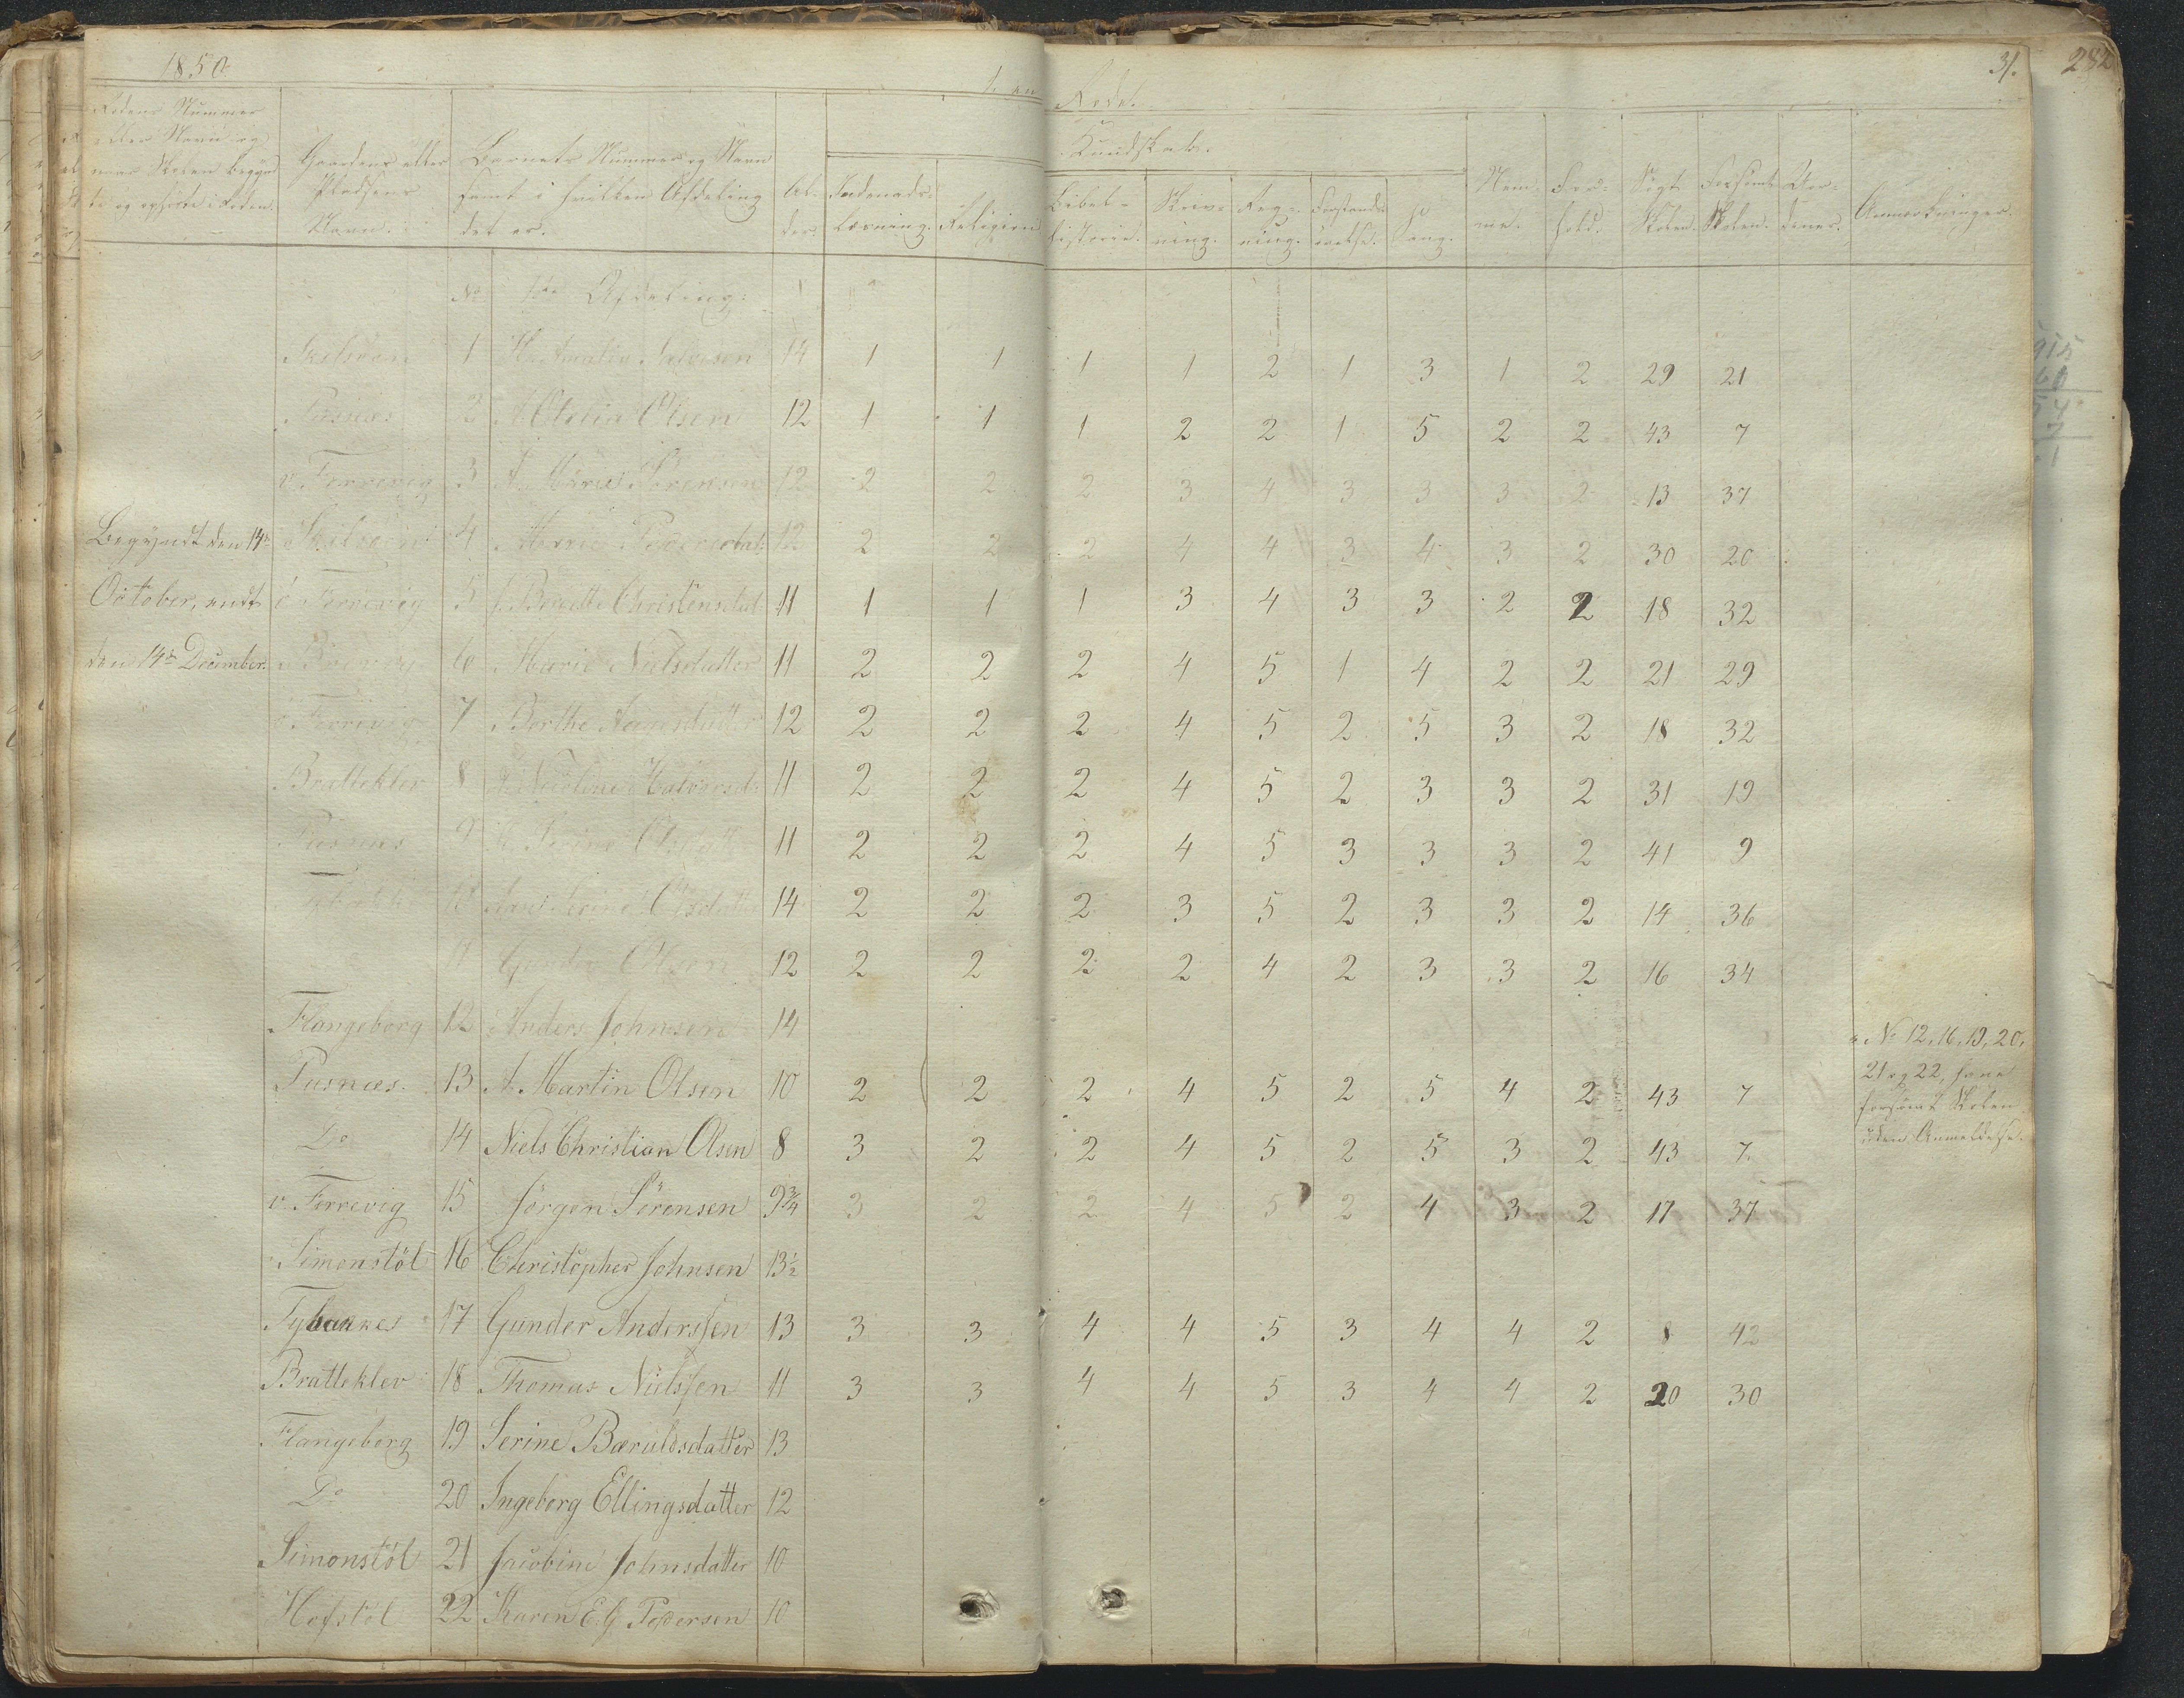 1850
31.
282
Rode.
Rodens Nummer
eller Navn og
naar Skolen begynd
te og ophørte i Roden.
Gaardens eller
Pladsens
Navn.
Barnets Nummer og Navn
samt i hvilken Afdeling
det er.
Al-
der.
Indenads-
læsning.
Religion
Kundskaber.
Bibel-
historie.
Skriv-
ning.
Reg-
ning.
Forstands-
øvelse.
Sang.
Nem-
me.
For-
hold.
Søgt
Skolen.
Forsømt
Skolen.
Anmærkninger.
No Afdeling:
Skilsøen 1 14 1 1 1 1 2 1 3 1 2 29 21
Pusnæs 2 Olsen 12 1 1 1 2 2 1 5 2 2 43 7
v. Ferrevig 3 A. Marie Sørensen 12 2 2 2 3 4 3 3 3 2 13 37
Begyndt den 14de Skilsøen 4 Marie 12 2 2 2 4 4 3 4 3 2 30 20
October, endt ø Ferrevig 5 Christensdat 11 1 1 1 3 4 3 3 2 2 18 32
den 14de December. 6 Marie Nielsdatter 11 2 2 2 4 5 1 4 2 2 21 29
ø Ferrevig 7 Berthe Aagesdatter 12 2 2 2 4 5 2 5 3 2 18 32
Bratteklev 8 Halvorsd. 11 2 2 2 4 5 2 3 3 2 31 19
Pusnæs 9 Serine Olsdatt 11 2 2 2 4 5 3 3 3 2 41 9
10 Serine Olsdatt 14 2 2 2 3 5 2 3 3 2 14 36
11 Gunder Olsen 12 2 2 2 2 4 2 3 3 2 16 34
Flangeborg 12 Anders Johnsen 14
Pusnæs. 13 A. Martin Olsen 10 2 2 2 4 5 2 5 4 2 43 7
Do 14 Niels Christian Olsen 8 3 2 2 4 5 2 5 3 2 43 7.
v. Ferrevig 15 Jörgen Sörensen 9 3/4 3 2 2 4 5 2 4 3 2 17 37
Simonstöl 16 Christopher Johnsen 13 1/2
Tybakkes 17 Gunder Anderssen 13 3 3 4 4 5 3 4 4 2 8 42
Bratteklev 18 Thomas Nielssen 11 3 3 4 4 5 3 4 4 2 20 30
Flangeborg 19 Serine Bæruldsdatter 13
Do 20 Ingeborg Ellingsdatter 12
Simonstöl 21 Jacobine Johnsdatter 10
Hofstöl 22 Karen E. G. Pedersen 10
No 12, 16, 19, 20,
21 og 22, have
forsømt Skolen
uden Anmeldelse.